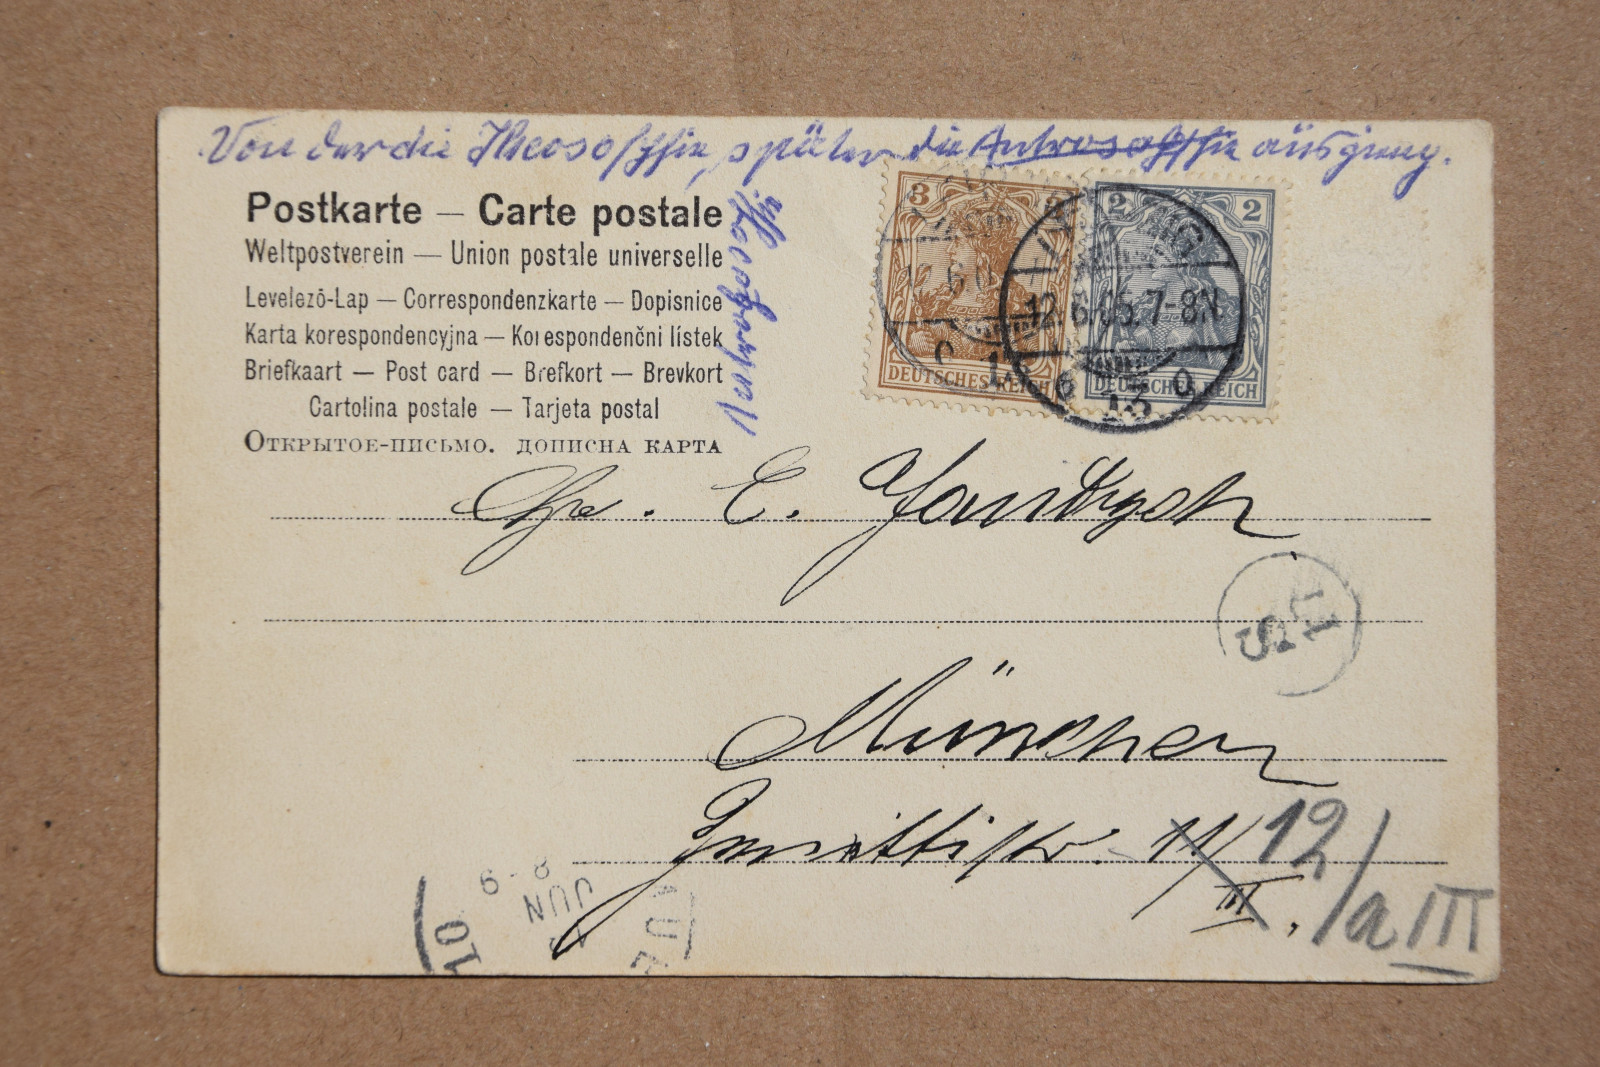 Von der die Theosophie, später die Antroposophie ausging.
Postkarte — Carte postale
Weltpostverein — Union postale universelle
Levelező-Lap — Correspondenzkarte — Dopisnice
Karta korespondencyjna — Korespondenční lístek
Briefkaart — Post card — Brefkort — Brevkort
Cartolina postale — Tarjeta postal
Открытое-письмо. дописна карта
3
2 2
12.6.05.7-8N.
13
DEUTSCHES REICH
DEUTSCHES REICH
E.
München
11/III. 12/a III
8-9
JUN
10